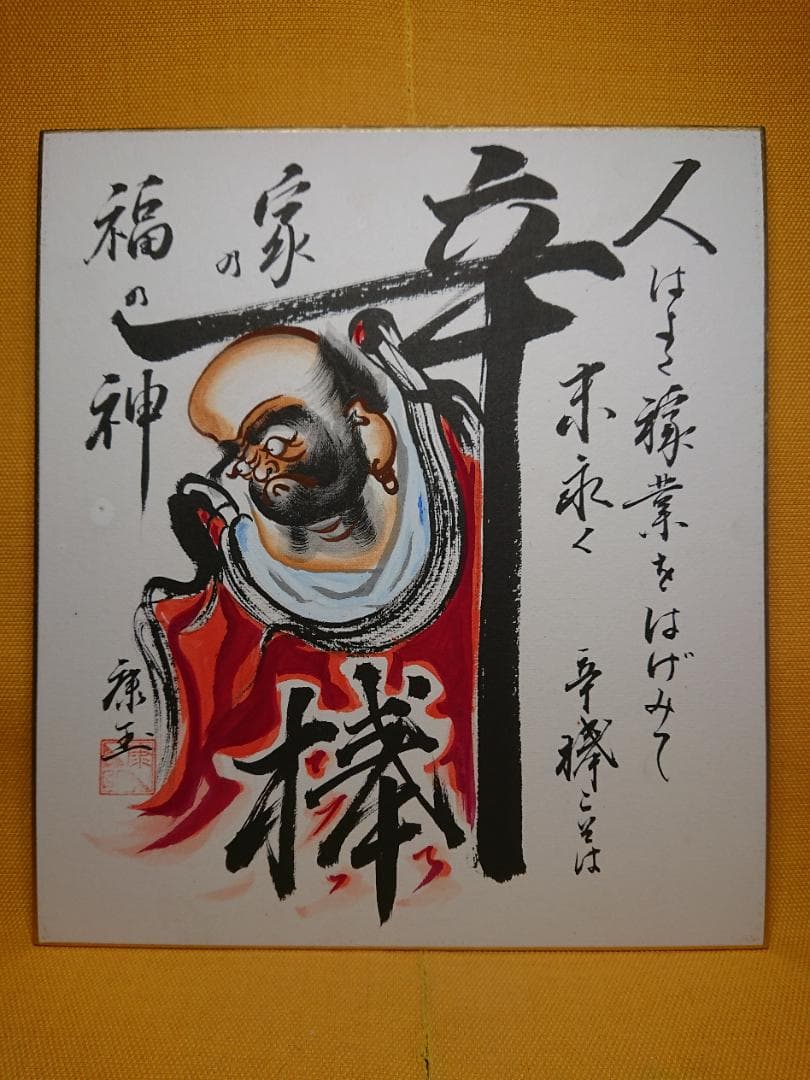 人は 稼業をはげみて
末永く 辛棒こそは
辛
棒
家の
福の神
康玉